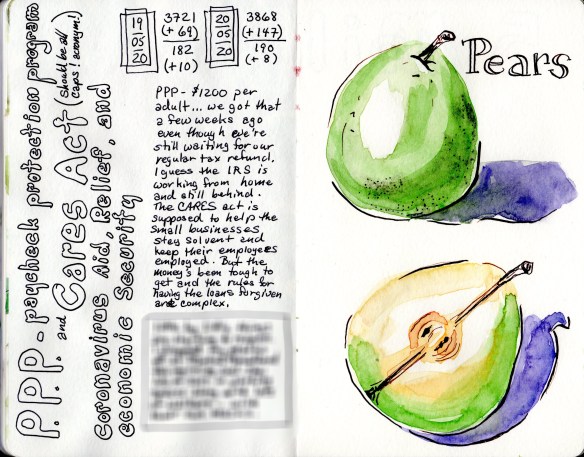 P.P.P. - paycheck protection program
and Cares Act (should be all
caps! acronym!)
Coronavirus Aid, Relief, and
economic Security
19
05
20
3721
(+69)
182
(+10)
20
05
20
3868
(+147)
190
(+8)
PPP - $1200 per
adult... we got that
a few weeks ago
even though we're
still waiting for our
regular tax refund.
I guess the IRS is
working from home
and still behind.
The CARES act is
supposed to help the
small businesses
stay solvent and
keep their employees
employed. But the
money's been tough to
get and the rules for
having the loans forgiven
are complex.
Pears